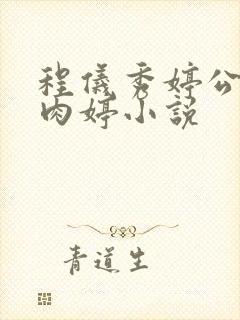 程儀秀婷公
肉婷小説
青道生